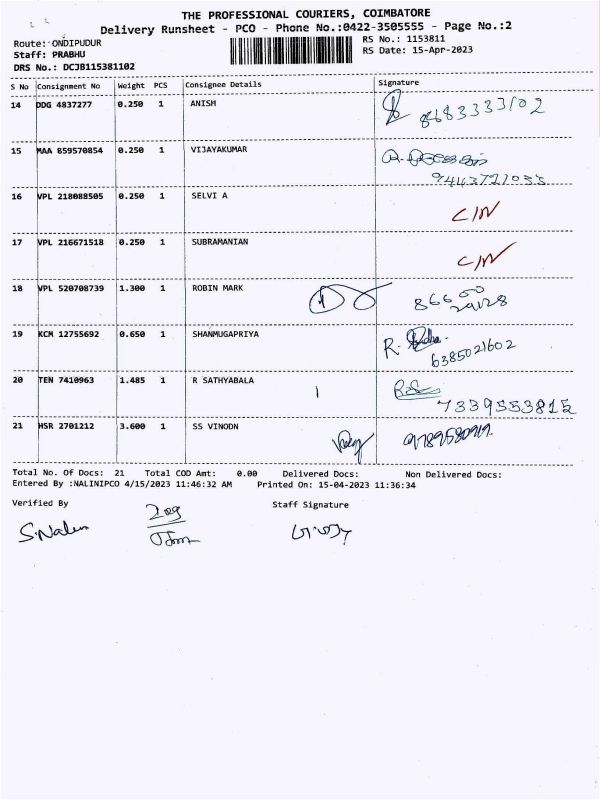 THE PROFESSIONAL COURIERS, COIMBATORE
Delivery Runsheet - PCO - Phone No.:0422-3505555 - Page No.:2
Route: ONDIPUDUR
RS No.: 1153811
Staff: PRABHU
RS Date: 15-Apr-2023
DRS No.: DCJB115381102
S No Consignment No Weight PCS Consignee Details Signature
14 DDG 4837277 0.250 1 ANISH
8683333102
15 MAA 859570854 0.250 1 VIJAYAKUMAR
9443721033
16 VPL 218088505 0.250 1 SELVI A
C/N
17 VPL 216671518 0.250 1 SUBRAMANIAN
C/N
18 VPL 520708739 1.300 1 ROBIN MARK
19 KCM 12755692 0.650 1 SHANMUGAPRIYA
R.
6385021602
20 TEN 7410963 1.485 1 R SATHYABALA
7339553815
21 HSR 2701212 3.600 1 SS VINODN
Total No. Of Docs: 21 Total COD Amt: 0.00 Delivered Docs: Non Delivered Docs:
Entered By :NALINIPCO 4/15/2023 11:46:32 AM Printed On: 15-04-2023 11:36:34
Verified By Staff Signature
S.Nalin